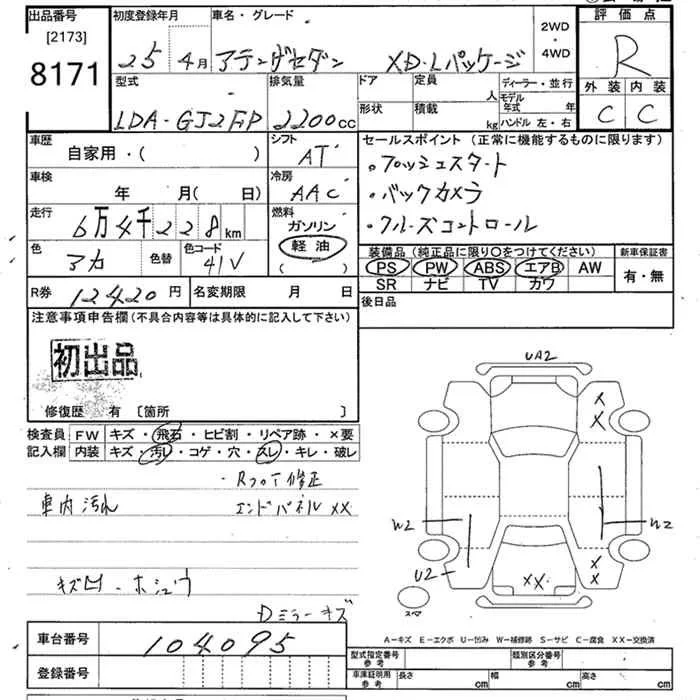 出品番号 初度登録年月 車名・グレード 2WD・4WD 評価点
[2173]
8171 25年4月 アテンザセダン XD・Lパッケージ R
型式 排気量 ドア 定員 人 ディーラー・並行 外装 内装
LDA-GJ2FP 2200cc 形状 積載 kg モデル年式 年 ハンドル 左・右 C C
車歴 自家用・( ) シフト AT セールスポイント(正常に機能するものに限ります)
・プッシュスタート
車検 年 月(日) 冷房 AAC ・バックカメラ
走行 6万4千228km 燃料 ガソリン 軽油 ( ) ・クルーズコントロール
色 アカ 色替 色コード 41V 装備品(純正品に限り○をつけてください) 新車保証書
PS PW ABS エアB AW 有・無
SR ナビ TV カワ
R券 12420円 名変期限 月 日 後日品
注意事項申告欄(不具合内容等は具体的に記入して下さい)
初出品
修復歴 有 [箇所 ]
UA2
X
X
検査員 FW キズ・飛石・ヒビ割・リペア跡・×要
記入欄 内装 キズ・汚れ・コゲ・穴・スレ・キレ・破レ
・Rフロア修正
車内汚れ エンドパネルXX
W2 W2
U2 XX X X
キズ凹・ホシュウ
スペア
Dミラーキズ
A−キズ E−エクボ U−凹み W−補修跡 S−サビ C−腐食 XX−交換済
車台番号 104095
型式指定番号 参考 類別区分番号 参考
登録番号 車庫証明用 参考 長さ cm 幅 cm 高さ cm